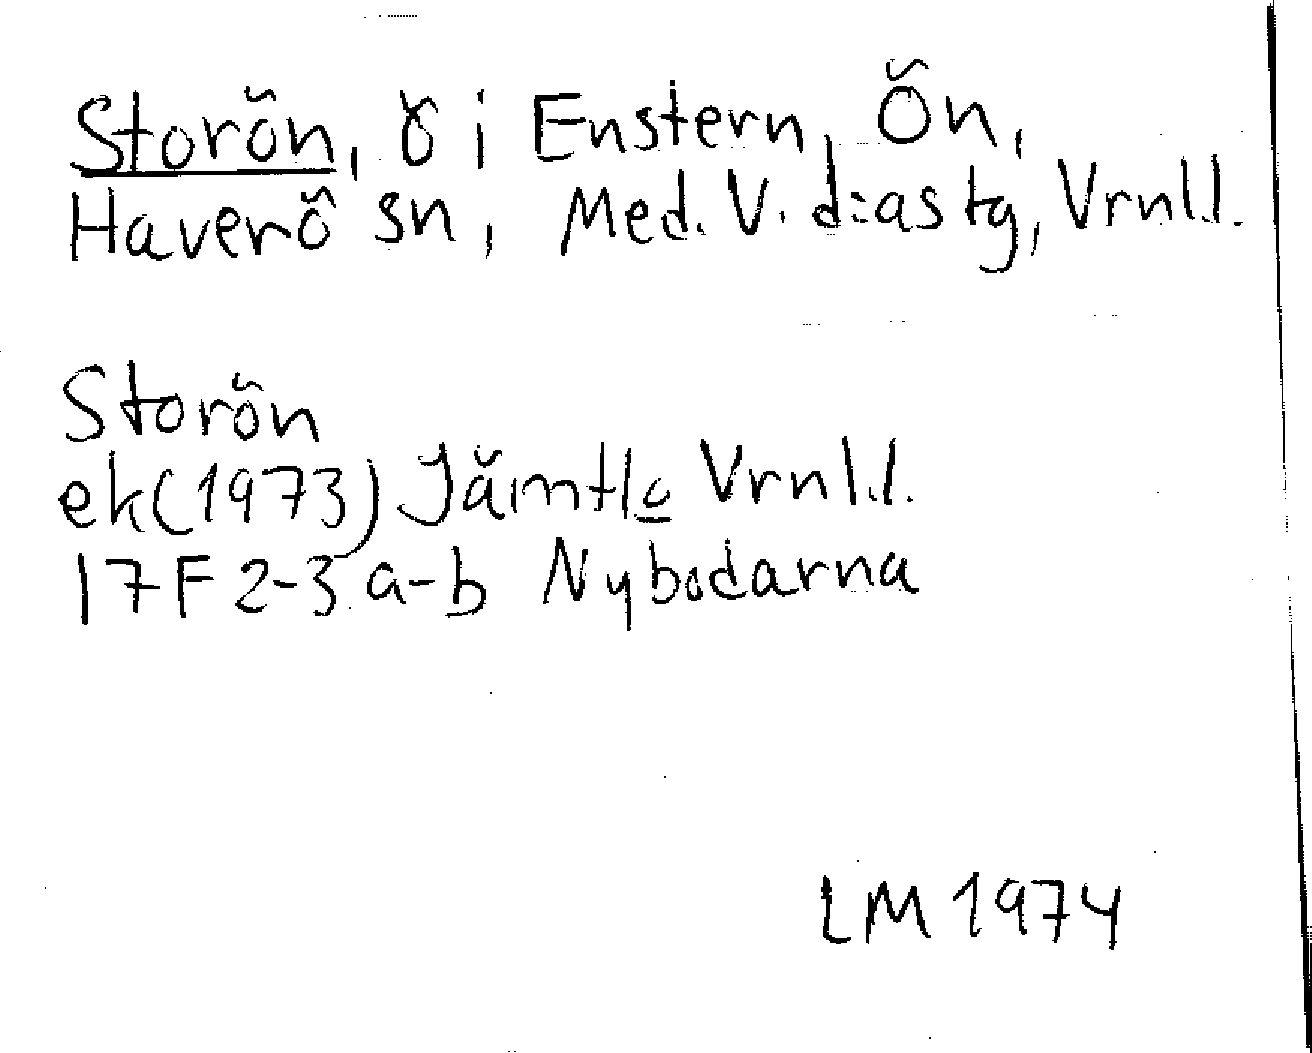 Storön, ö i Enstern, Ön,
Haverö sn, Med. V. d:as tg, Vrnl.l.
Storön
ek(1973) Jämtl c Vrnl.l.
17F 2-3 a-b Nybodarna
LM 1974